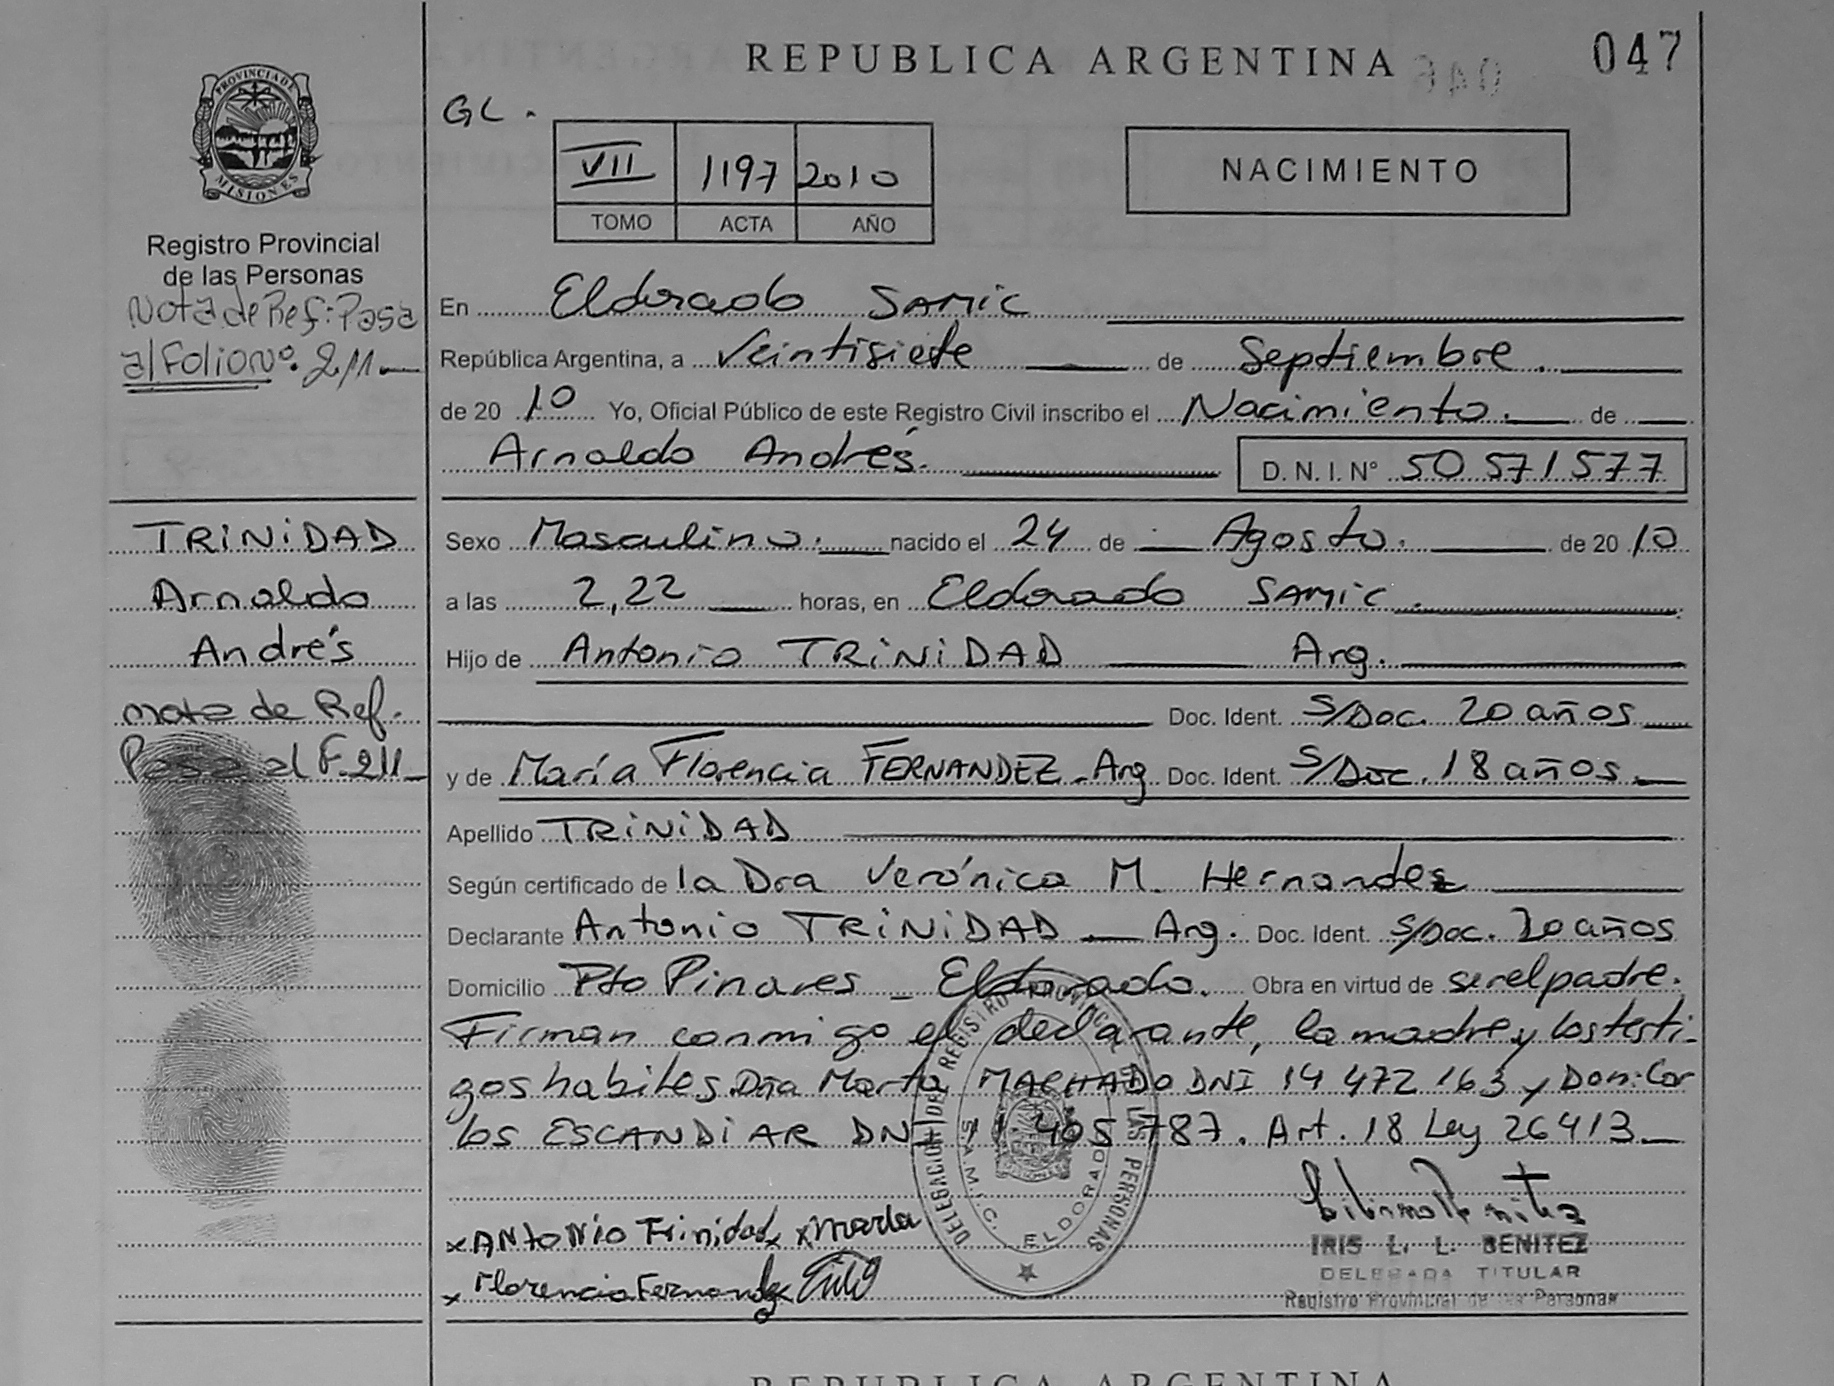 REPUBLICA ARGENTINA
047
PROVINCIA DE
MISIONES
Registro Provincial
de las Personas
Nota de Ref: Pasa
al Folio Nº: 211
GL.
VII 1197 2010
TOMO ACTA AÑO
NACIMIENTO
En Eldorado SAMIC
República Argentina, a Veintisiete de Septiembre.
de 20 10 Yo, Oficial Público de este Registro Civil inscribo el Nacimiento. de
Arnaldo Andrés. D. N. I. Nº 50 571 577
TRINIDAD
Arnaldo
Andrés
nota de Ref.
Pasa al F. 211
Sexo Masculino. nacido el 24 de Agosto. de 20 10
a las 2,22 horas, en Eldorado SAMIC.
Hijo de Antonio TRINIDAD Arg.
Doc. Ident. S/Doc. 20 años
y de María Florencia FERNANDEZ - Arg Doc. Ident. S/Doc. 18 años
Apellido TRINIDAD
Según certificado de la Dra Verónica M. Hernandez
Declarante Antonio TRINIDAD Arg. Doc. Ident. S/Doc. 20 años
Domicilio Pto Pinares - Eldorado. Obra en virtud de ser el padre.
Firman conmigo el declarante, la madre y los testi-
gos habiles Dña Marta MACHADO DNI 14 472 163 y Don: Car
los ESCANDIAR DNI 11 405 787. Art. 18 Ley 26413
DELEGACION DEL REGISTRO PROVINCIAL DE LAS PERSONAS
S.A.M.I.C. ELDORADO
x ANtoNio Trinidad x Marta
x Florencia Fernandez
IRIS L. L. BENITEZ
DELEGADA TITULAR
Registro Provincial de las Personas
REPUBLICA ARGENTINA